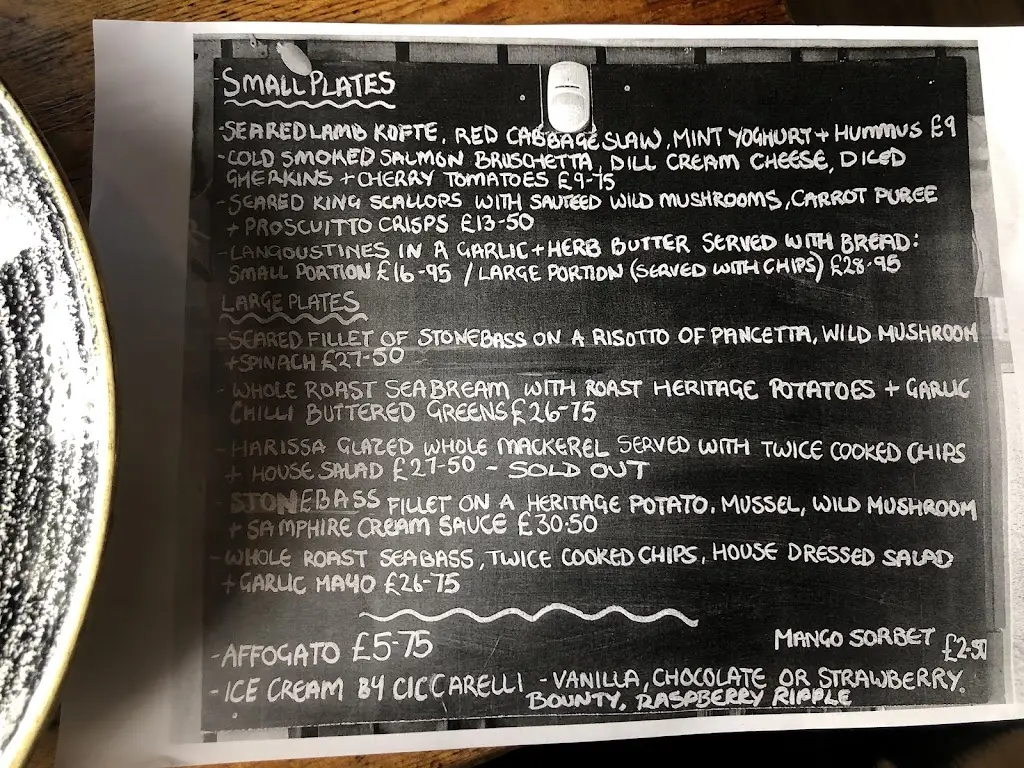 SMALL PLATES
-SEARED LAMB KOFTE, RED CABBAGE SLAW, MINT YOGHURT + HUMMUS £9
-COLD SMOKED SALMON BRUSCHETTA, DILL CREAM CHEESE, DICED
GHERKINS + CHERRY TOMATOES £9-75
-SEARED KING SCALLOPS WITH SAUTEED WILD MUSHROOMS, CARROT PUREE
+ PROSCUITTO CRISPS £13-50
-LANGOUSTINES IN A GARLIC + HERB BUTTER SERVED WITH BREAD:
SMALL PORTION £16-95 / LARGE PORTION (SERVED WITH CHIPS) £28-95
LARGE PLATES
-SEARED FILLET OF STONEBASS ON A RISOTTO OF PANCETTA, WILD MUSHROOM
+SPINACH £27-50
- WHOLE ROAST SEABREAM WITH ROAST HERITAGE POTATOES + GARLIC
CHILLI BUTTERED GREENS £26-75
- HARISSA GLAZED WHOLE MACKEREL SERVED WITH TWICE COOKED CHIPS
+ HOUSE SALAD £27-50 - SOLD OUT
- STONEBASS FILLET ON A HERITAGE POTATO, MUSSEL, WILD MUSHROOM
+ SAMPHIRE CREAM SAUCE £30-50
-WHOLE ROAST SEABASS, TWICE COOKED CHIPS, HOUSE DRESSED SALAD
+ GARLIC MAYO £26-75
-AFFOGATO £5-75 MANGO SORBET £2-50
-ICE CREAM BY CICCARELLI - VANILLA, CHOCOLATE OR STRAWBERRY,
BOUNTY, RASPBERRY RIPPLE